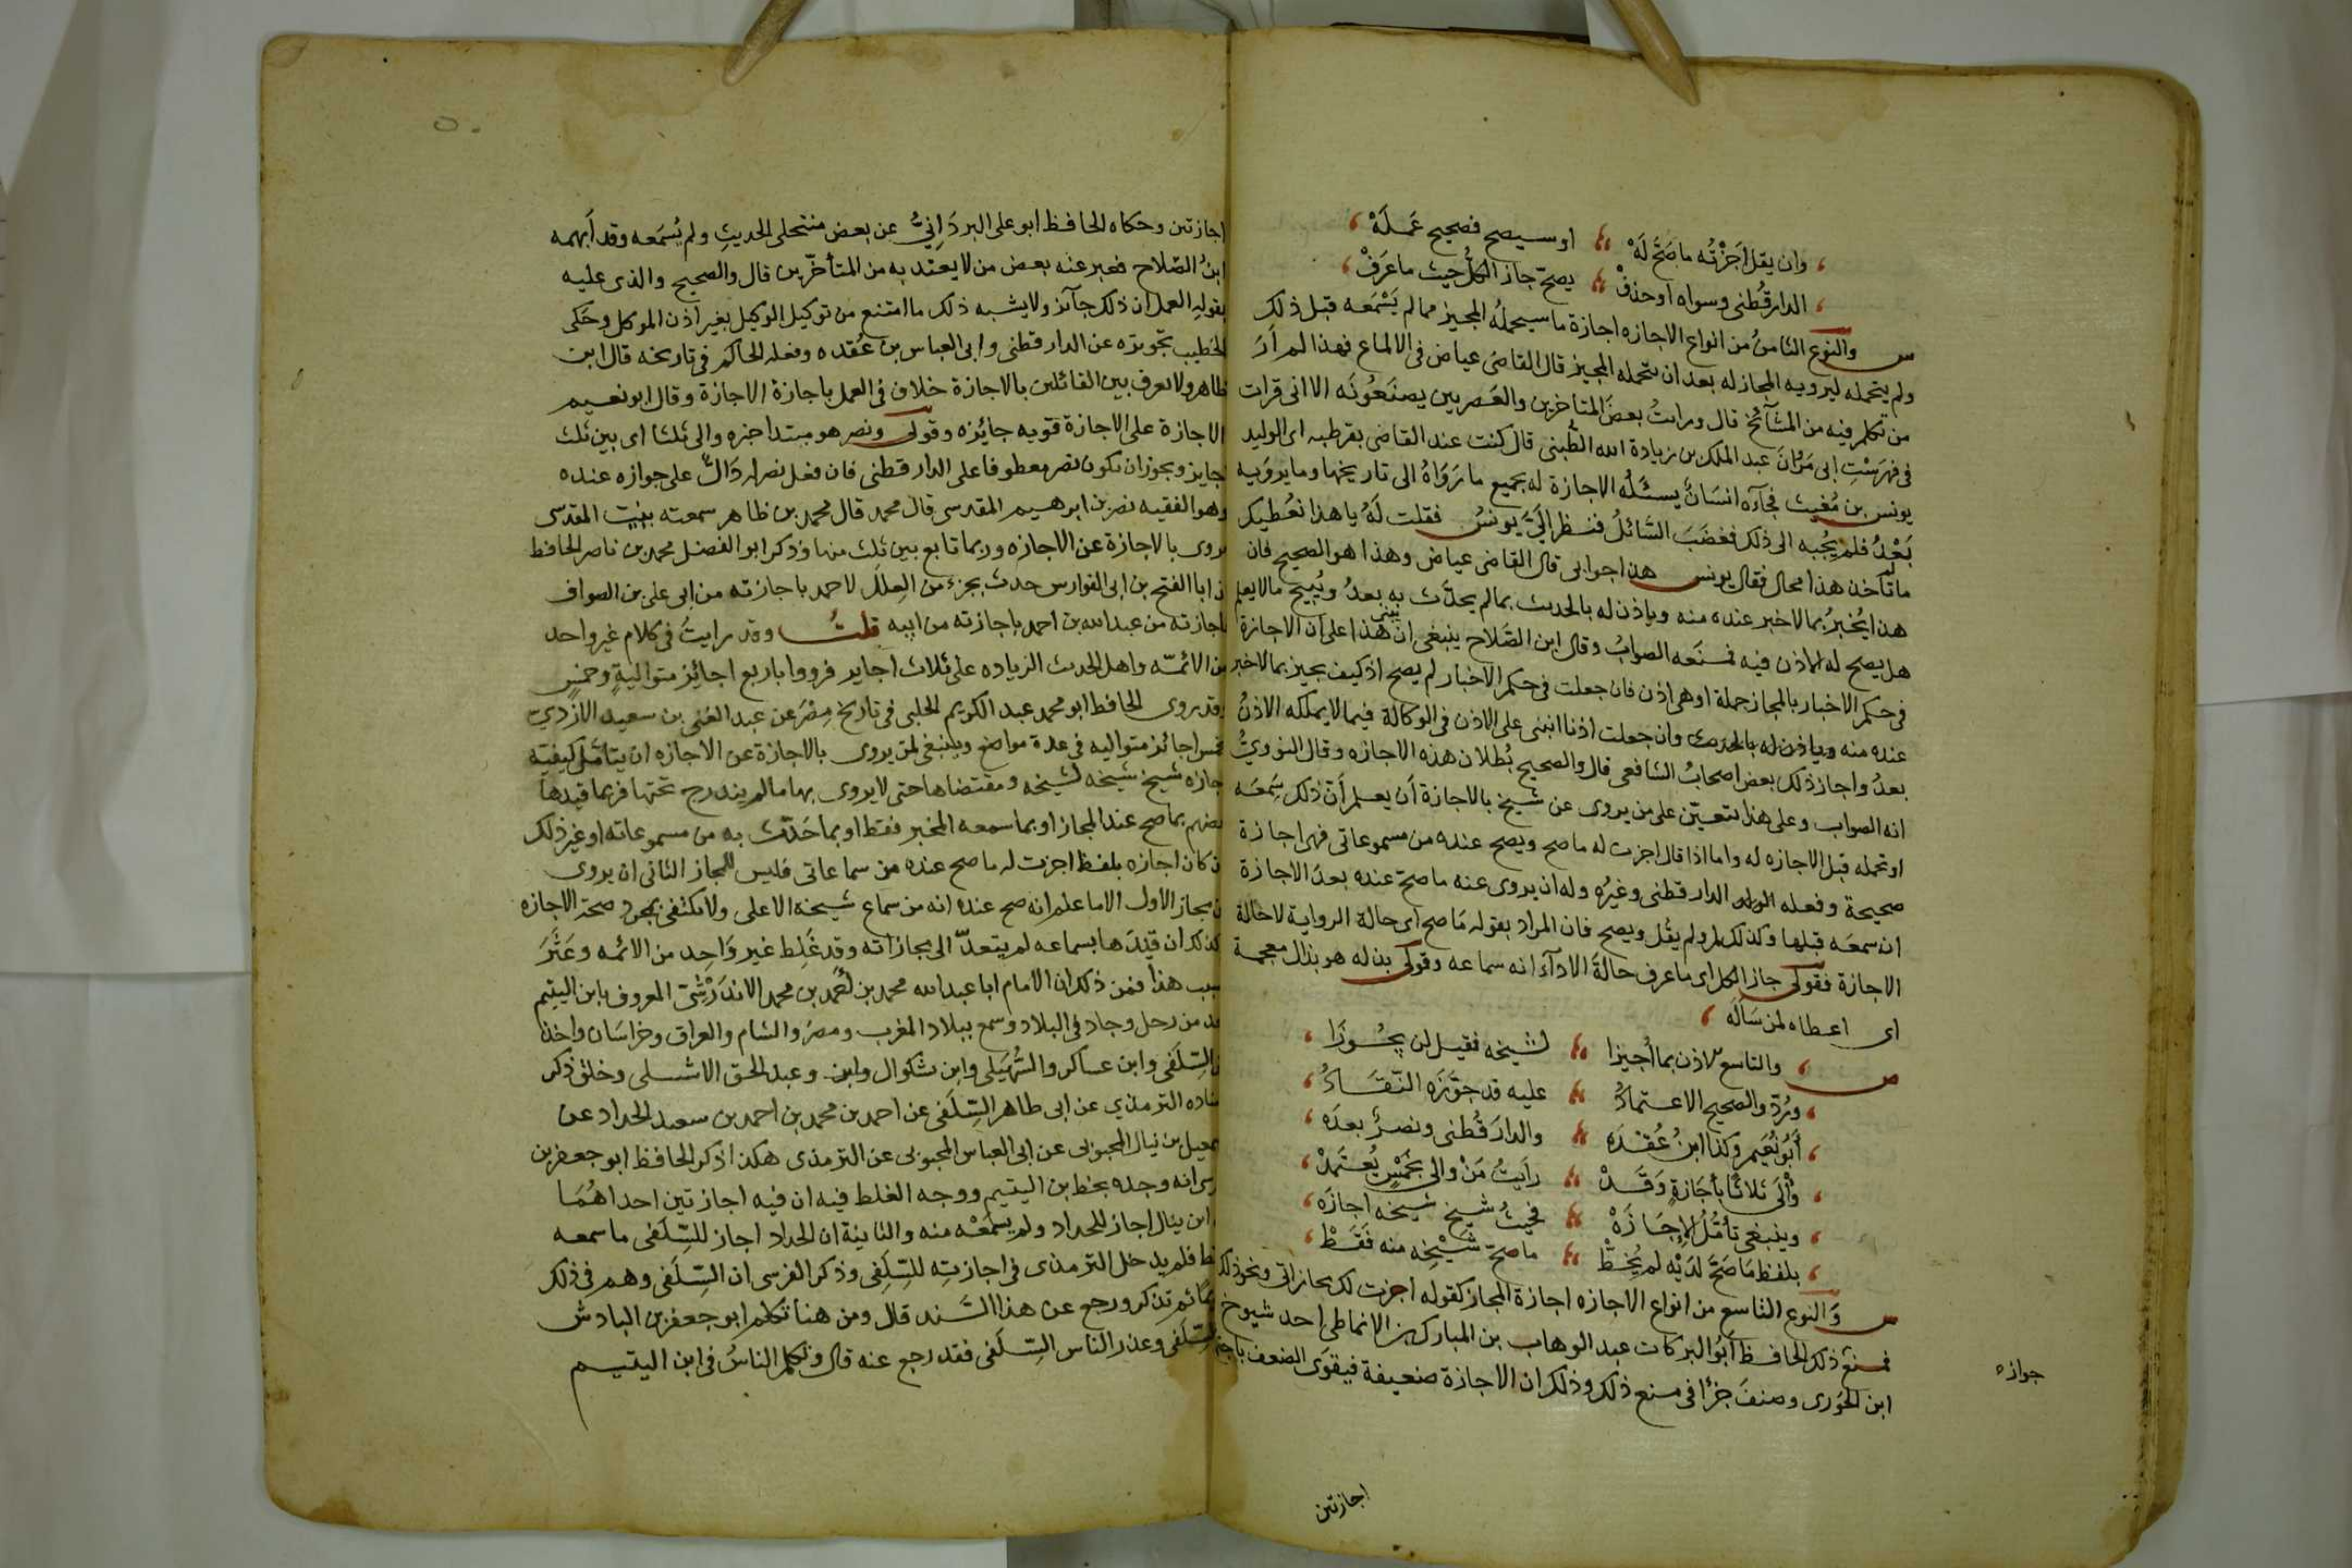 وان يقل اجَزْتُه ما صَحَّ لَهْ او سيصح فصحيح عَملَهْ
الدارقُطنى وسواه او حذفْ يصحّ جاز الكلُّ حيث ما عَرَفْ
س والنوع الثامنُ من انواع الاجازه اجازة ما سيحملُهُ المجيز مما لم يَسْمَعه قبل ذلك
ولم يتحمله ليرويه المجاز له بعد ان يتحمله المجيز قال القاضى عياض فى الالماع فهذا لم اَرَ
من تكلم فيه من المشآئخ قال ورايتُ بعضَ المتاخرين والعَصريين يصنَعُونَه الا انى قرات
فى فهرَسْتِ ابى مَرْوانَ عبد الملك بن زيادة الله الطُّبنى قال كنت عند القاضى بقرطبه ابى الوليد
يونس بن مُغيث فجآءه انسَانٌ يسئَلُه الاجازة له بجميع ما رَوَاهُ الى تاريخها وما يرويه
بَعْدُ فلم يُجبه الى ذلك فغضَبَ السَّائلُ فنظر اِلَىَّ يونسُ فقلت لَهُ يا هذا نُعْطيك
ما لم تاخذ هذا محال فقال يونس هذا جوابى قال القاضى عياض وهذا هو الصحيح فان
هذا يُخبرُ بما لا خبر عنده منه وياذن له بالحديث بما لم يحدَّث به بعدُ ويُبيح ما لا يعلم
هل يصح له الاذن فيه فمنَعه الصوابُ وقال ابن الصَلاح ينبغى ان يبنى هذا على ان الاجازة
فى حكم الاخبار بالمجاز جملة او هى اذن فان جعلت فى حكم الاخبار لم يصح اذ كيف يجيز بما لا خبر
عنده منه وان جعلت اذنا انبنى على الاذن فى الوكالة فيما لا يملكه الاذنُ
بعدُ واجاز ذلك بعض اصحابُ الشافعى قال والصحيح بُطلان هذه الاجازه وقال النوويُّ
انه الصواب وعلى هذا يتعيّن على من يروى عن شيخ بالاجازة أن يعلم أنّ ذلك سَمِعَه
او تحمله قبل الاجازه له واما اذا قال اجزت له ما صح ويصح عنده من مسموعاتى فهى اجازة
صحيحة وفعله الدارقطنى وغيُره وله ان يروى عنه ما صحّ عنده بعد الاجازة
ان سمعَه قبلها وكذلك لو لم يقُل ويصح فان المراد بقوله مَا صح اى حالة الرواية لا حالة
الاجازة فقولى جاز الكل اى ما عرف حالةَ الادآء انه سماعه وقولى بذله هو بذال معجمة
اى اعطاه لمن سَألَه
س والتاسع الاذن بما أُجيزا لشيخه فقيل لن يجُوزَا
ورُدّ والصحيح الاعتمادُ عليه قد جوَّزَه النّقّادُ
أَبُو نُعَيم وكذا ابنُ عُقْدَه والدارَقُطنى ونصرٌ بعدَه
وَالَى ثلاثًا بأجَازةٍ وَقَدْ رايتُ مَنْ والى بخَمْسٍ يُعتَمدْ
وينبغى تأمّلُ الإجَازَهْ فحيثُ شيخ شيخه اجازَه
بلفظ مَا صَحَّ لدَيْه لم يُخطَّ ما صحّ شَيْخِه منه فَقَطْ
س وَالنوع التاسع من انواع الاجازه اجازة المجاز كقوله اجزت لك مجازاتى ونحو ذلك
فمنعَ ذلك الحافظ أبُو البركات عبد الوهاب بن المبارك بن الانماطى احد شيوخ
ابن الجَوزى وصنفَ جزًا فى منع ذلك وذلك ان الاجازة ضعيفة فيقوَى الضعف باجتماع
جوازه
اجازتين
اجازتين وحكاه الحافظ ابو على البردَانِيُّ عن بعض منتحلى الحديثِ ولم يُسَمّعه وقد أبهمه
ابنُ الصّلاح فعبر عنه بعض من لا يعتد به من المتأخّرين قال والصحيح والذى عليه
العمل ان ذلك جآئز ولا يشبه ذلك ما امتنع من توكيل الوكيل بغير اذن الموكل وحَكى
الخطيب تجويزه عن الدارقطنى وابى العباس بن عُقده وفعله الحاكم فى تاريخه قال ابن
طاهر ولا نعرف بين القائلين بالاجازة خلاف فى العمل باجازة الاجازة وقال ابو نعيم
الاجازة على الاجازة قويه جايُزه وقولى ونصر هو مبتدا خبره والى ثلثا اى بين ثلث
اجايز ويجوز ان يكون نصر معطوفا على الدارقطنى فان فعل نصر دَالٌّ على جوازه عنده
وهو الفقيه نصر بن ابرهيم المقدسى قال محمد بن طاهر سمعته ببيت المقدس
يروى بالاجازة عن الاجازه وربما تابع بين ثلث منها وذكر ابو الفضل محمد بن ناصر الحافظ
ان ابا الفتح بن ابى الفوارس حدث بجزء من العِلَل لاحمد باجازته من ابى على بن الصواف
باجازته من عبد الله بن احمد باجازته من ابيه قلتُ وقد رايتُ فى كلام غير واحد
من الائمّه واهل الحديث الزياده على ثلاث اجايز فرووا باربع اجائِز متواليةٍ وخمسٍ
وقد روى الحافظ ابو محمد عبد الكريم الحلبى فى تاريخ مِصْرَ عن عبد الغنى بن سعيد الازدي
بخمس اجائز متواليه فى عدة مواضع وينبغى لمن يروى بالاجازة عن الاجازه ان يتأمَّل كيفيّه
اجازه شيخ شيخه لشيخه ومقتضاها حتى لا يروى بها ما لم يندرج تحتها فربما قيدها
بعضهم بما صح عند المجاز او بما سمعه المخبر فقط او بما حَدّث به من مسموعاته او غير ذلك
فان كان اجازه بلفظ اجزت له ما صح عنده من سماعاتى فليس للمجاز الثانى ان يروى
عن مجاز الاول الا ما علم انه صح عنده انه من سماع شيخه الاعلى ولا يكتفى بمجرد صحة الاجازه
وكذلك ان قيّدَها بسماعه لم يتعدّ الى مجازاته وقد غَلِط غير وَاحِد من الائمه وعَثَرَ
بسبب هذا فمن ذلك ان الامام ابا عبد الله محمد بن أحمَد بن محمد الاندَرْشِىّ المعروف بابن اليتيم
احد من رحل وجاد فى البلاد وسمع ببلاد المغرب ومصرَ والشام والعراق وخراسَان واخذ
عن السِّلَفى وابن عساكر والسُّهَيلى وابن بشكوال وعبد الحق الاشبيلى وخلق ذكر
اسناده الترمذي عن ابى طاهر السِّلَفى عن احمد بن محمد بن احمد بن سعيد الحداد عن
اسمعيل بن ينال المحبوبى عن ابى العباس المحبوبى عن الترمذى هكذا ذكر الحافظ ابو جعفر بن
انه وجده بخط بن اليتيم ووجه الغلط فيه ان فيه اجازتين احداهُمَا
ان ابن ينال اجاز للحداد ولم يسمَعْه منه والثانيةُ ان الحداد اجاز للسِّلَفى ما سمعه
فقط فلم يدخل الترمذى فى اجازتِه للسِّلَفى وذكر الغرسى ان السِّلَفى وهم فى ذلك
ثم تذكر ورجع عن هذا السَّند قال ومن هنا تكلم ابو جعفر بن الباذش
السِّلَفى وعذر الناس السِّلَفى فقد رجع عنه قال وتكلم الناسُ فى ابن اليتيم